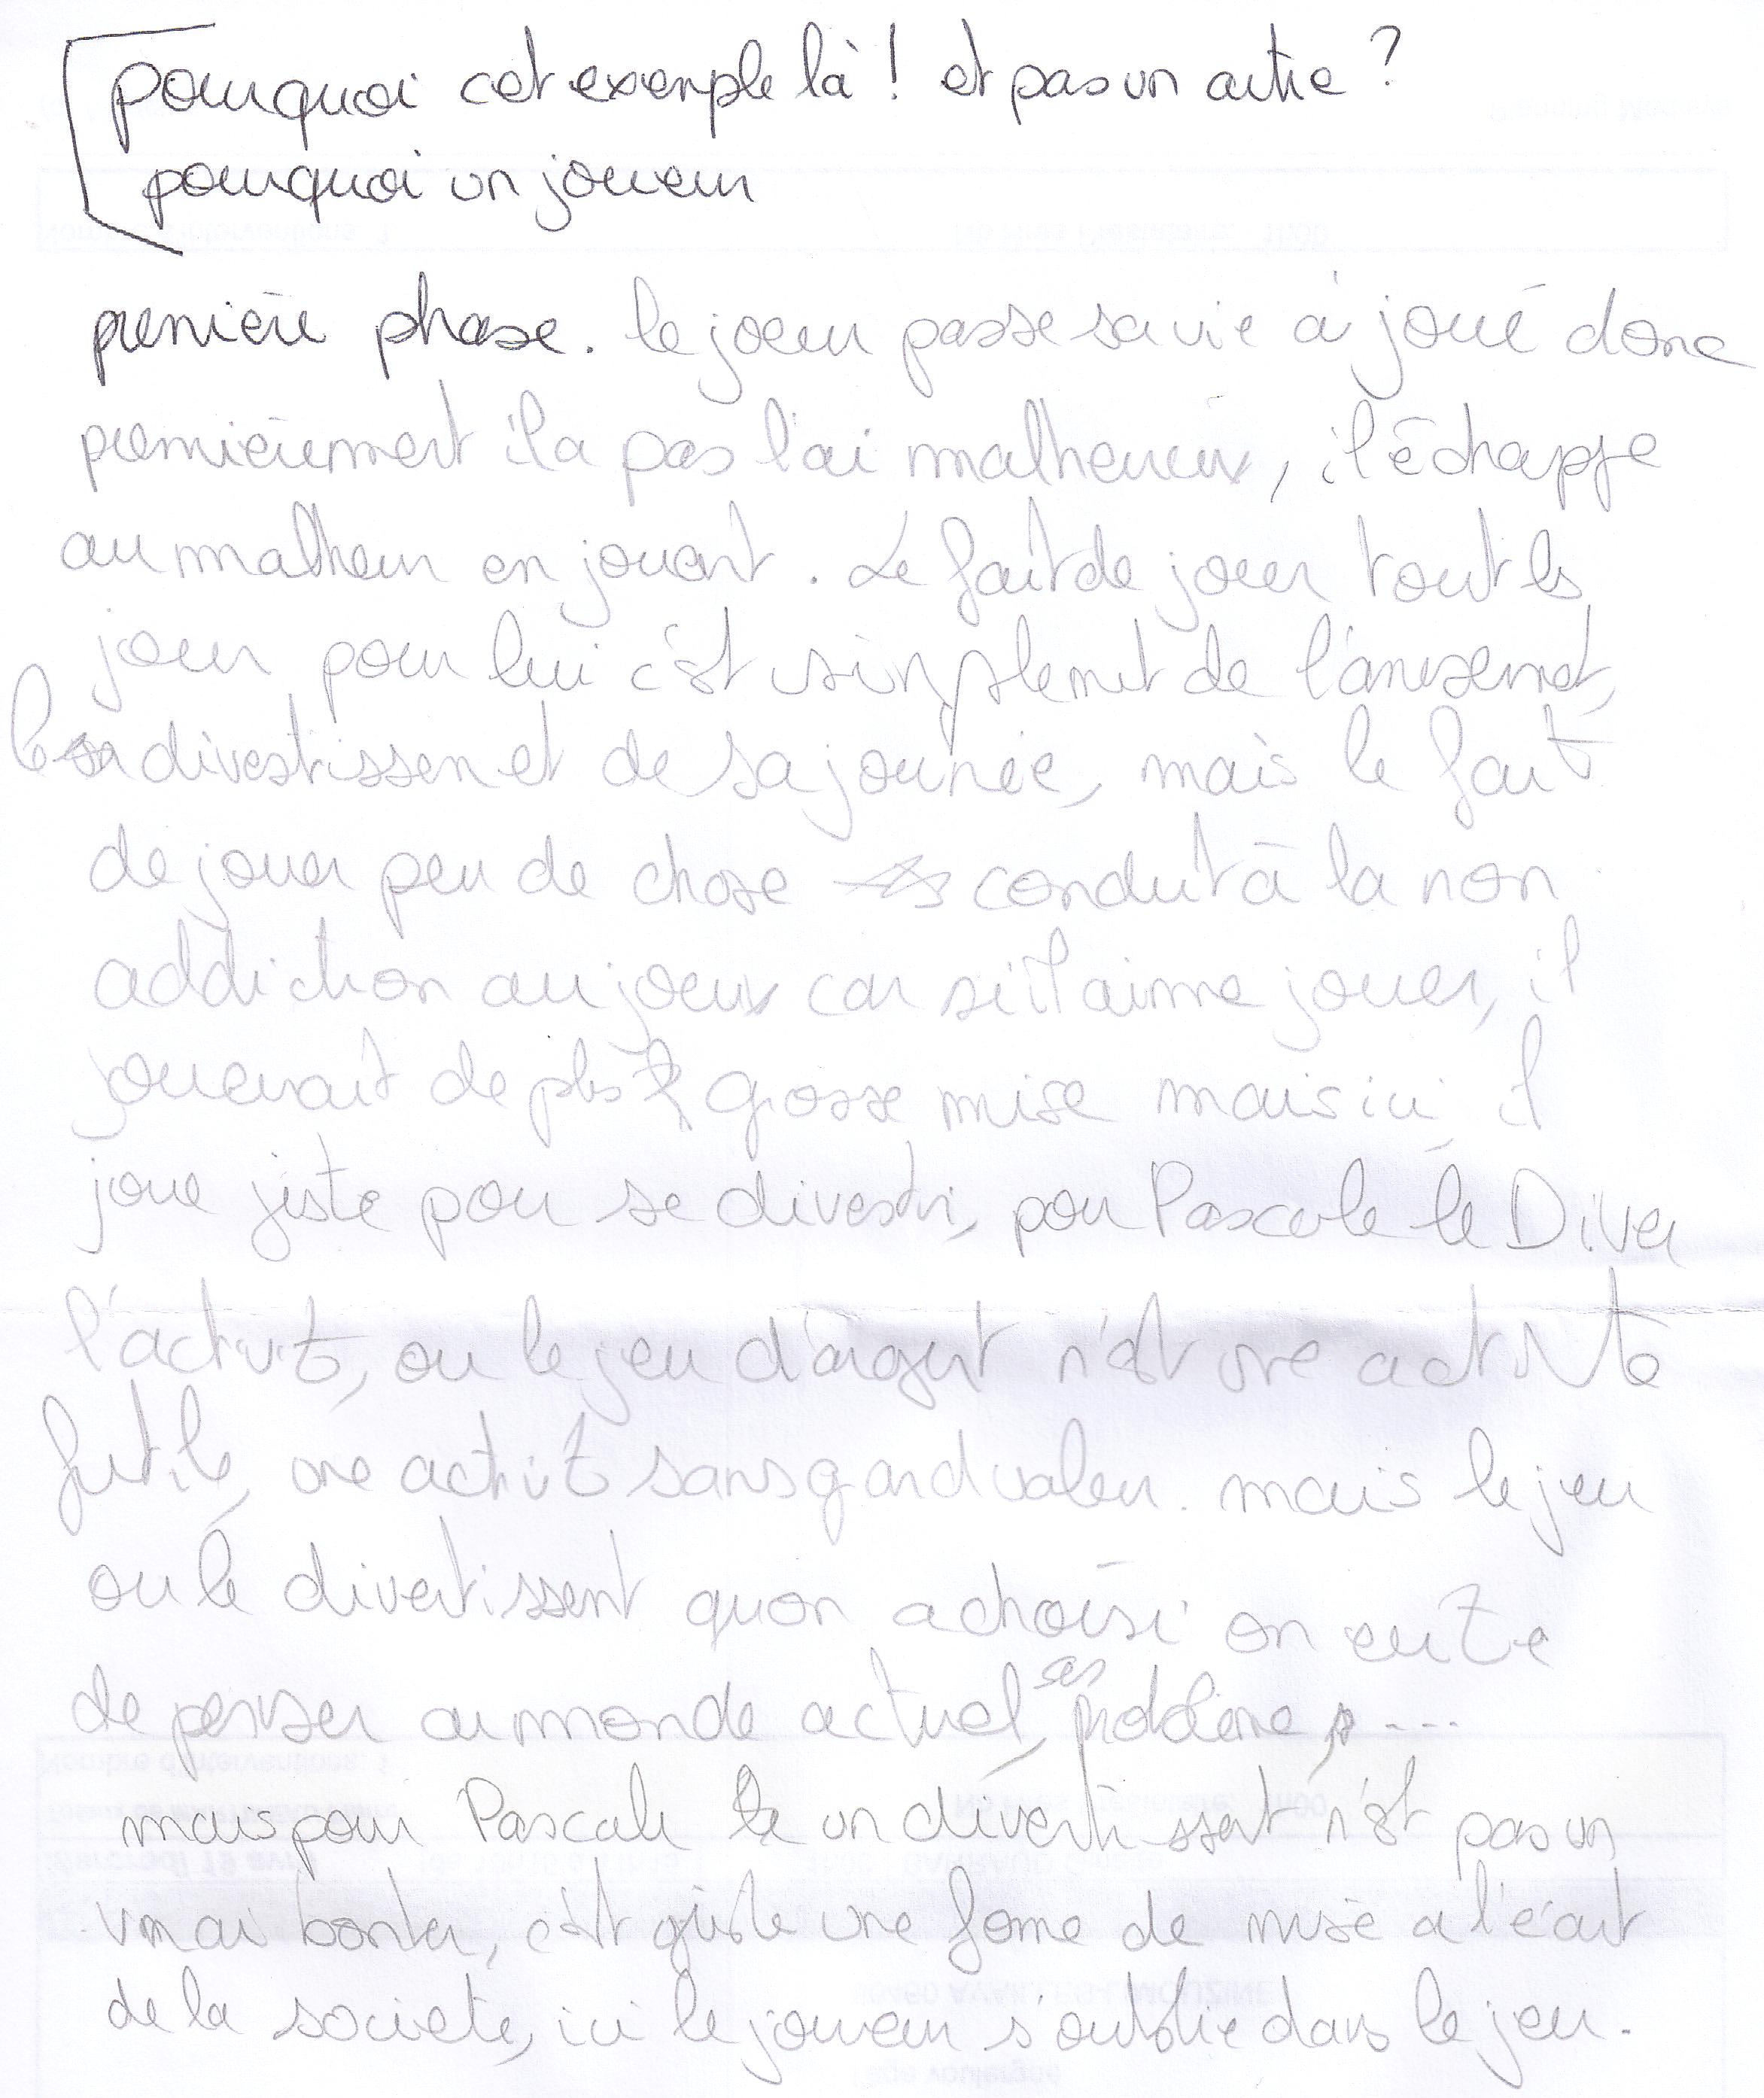 pourquoi cet exemple là ! et pas un autre ?
pourquoi un joueur
première phase. le joeur passe sa vie à joué donc
premièrement il a pas l'ai malheureux, il échappe
au malheur en jouant. Le fait de jouer tout les
jour pour lui c'est simplement de l'amusement,
le divestissement de sa journée, mais le fait
de jouer peu de chose conduit à la non
addiction au joeux car si il aime jouer, il
jouerait de plus grosse mise mais ici il
joue juste pour se divestir, pour Pascale le Diver
l'activité, ou le jeu d'argent n'est une activité
futile, une activité sans grand valeur. mais le jeu
ou le divertissent qu'on a choisi on évite
de penser au monde actuel, ses problème, ...
mais pour Pascale un divertissent n'est pas un
vrai bonheur, c'est juste une forme de mise a l'écart
de la société, ici le joueur s'oublie dans le jeu.